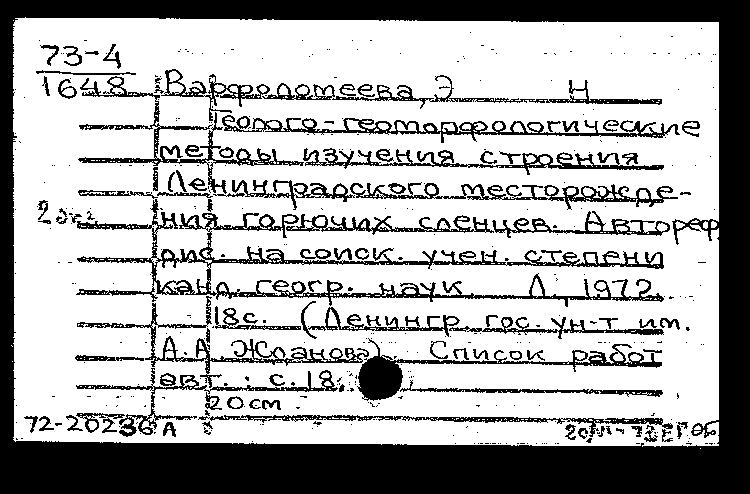 73-4
1648 Варфоломеева, Э Н
Геолого-геоморфологические
методы изучения строения
Ленинградского месторожде-
2 экз
ния горючих сланцев. Автореф
дис. на соиск. учен. степени
канд. геогр. наук Л, 1972.
18с. (Ленингр. гос. ун-т им.
А.А. Жданова). Список работ
авт.: с. 18.
20см.
72-20236 А